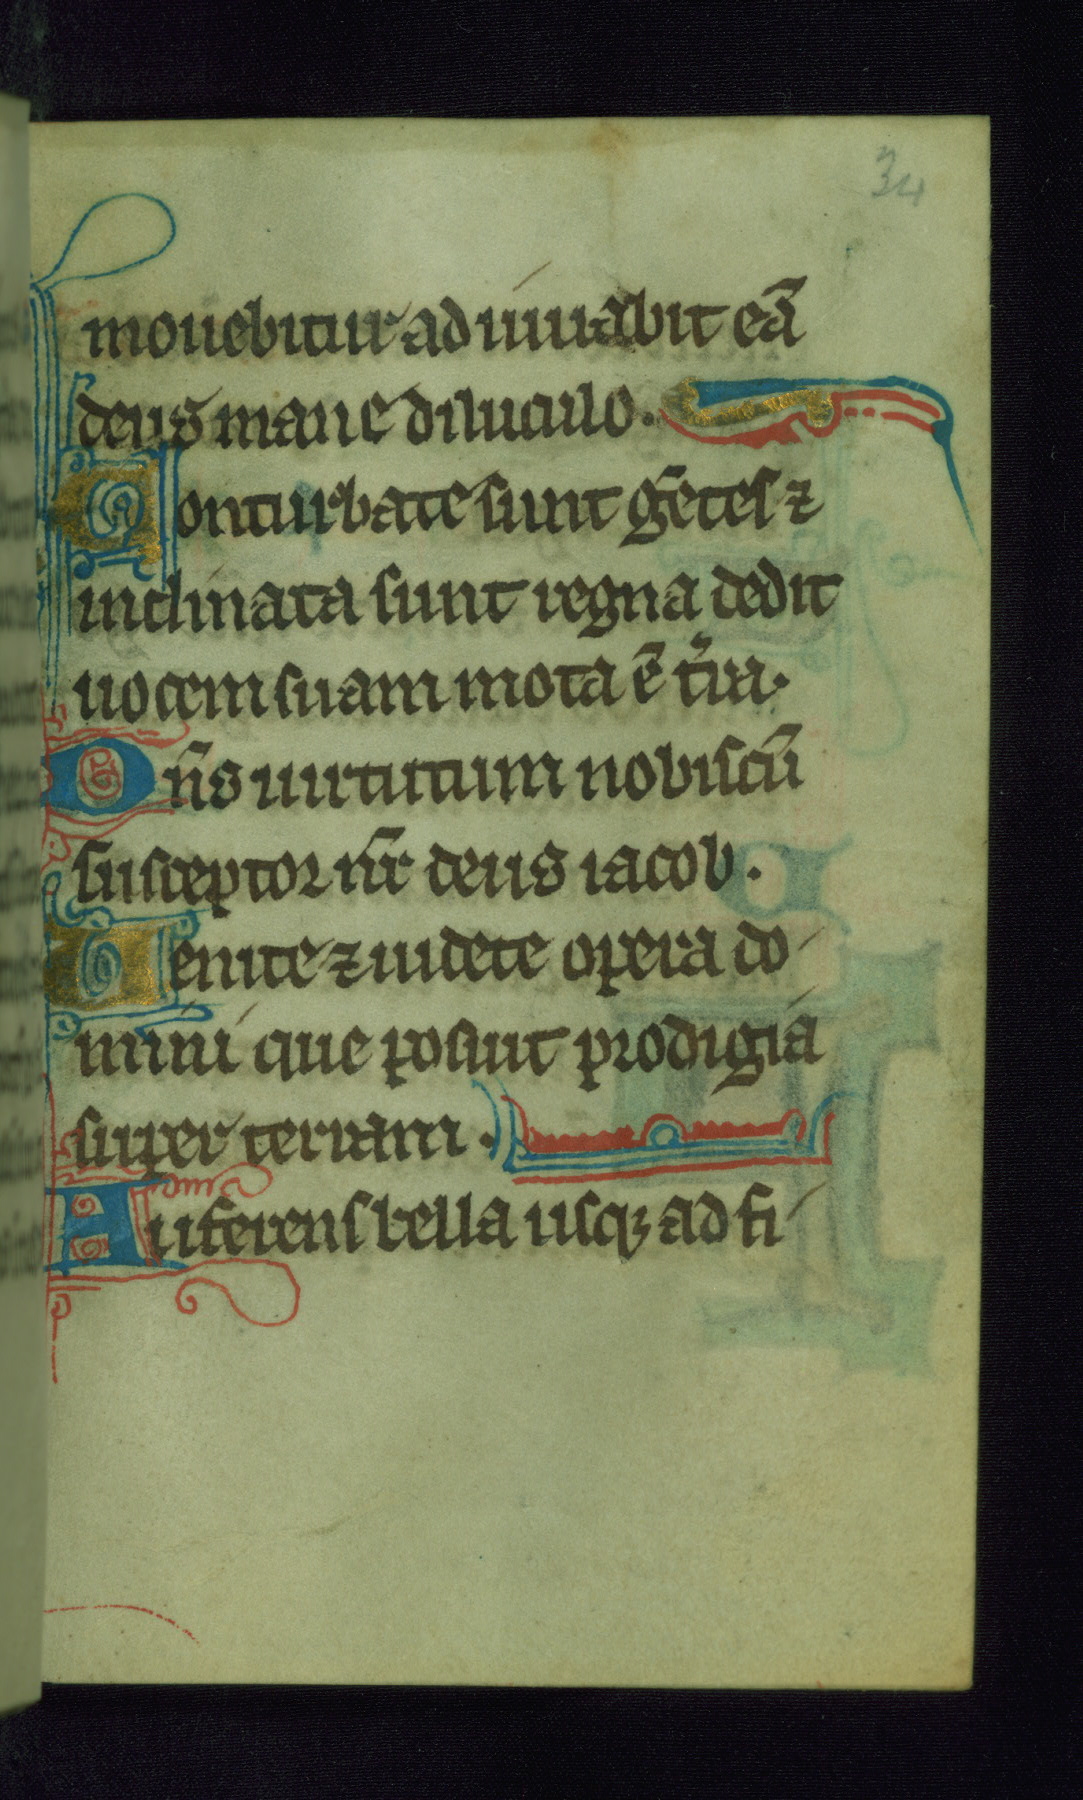 34
mouebitur adiuuabit eā
deus mane diluculo.
Conturbate sunt gētes ⁊
inclinata sunt regna dedit
uocem suam mota ē t̄ra.
Dn̄s uirtutum nobiscū
susceptor nr̄ deus iacob.
Uenite ⁊ uidete opera do
mini que posuit prodigia
super terram.
Auferens bella usqꝫ ad fi